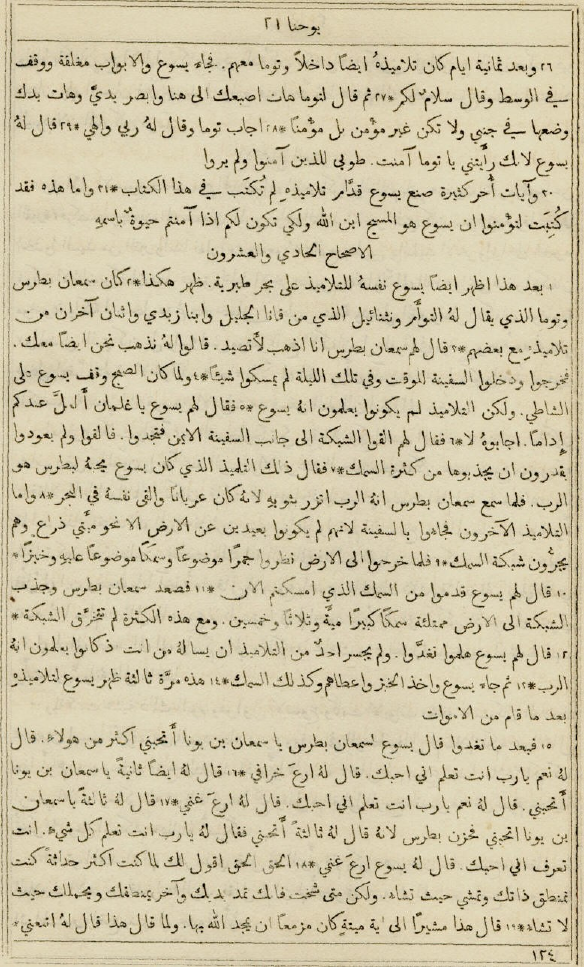 يوحنا ٢١
٢٦ وبعد ثمانية ايام كان تلاميذهُ ايضًا داخلاً وتوما معهم. فجاء يسوع والابواب مغلقة ووقف
في الوسط وقال سلامٌ لكم *٢٧ ثم قال لتوما هات اصبعك الى هنا وابصر يديَّ وهات يدك
وضعها في جنبي ولا تكن غير مؤمن بل مؤمنًا *٢٨ اجاب توما وقال لهُ ربي والهي *٢٩ قال لهُ
يسوع لانك رأيتني يا توما آمنت. طوبى للذين آمنوا ولم يروا
٣٠ وآيات أُخر كثيرة صنع يسوع قدَّام تلاميذهِ لم تُكتَب في هذا الكتاب *٣١ واما هذه فقد
كُتِبَت لتؤمنوا ان يسوع هو المسيح ابن الله ولكي تكون لكم اذا آمنتم حيوةٌ باسمهِ
الاصحاح الحادي والعشرون
١ بعد هذا اظهر ايضًا يسوع نفسهُ للتلاميذ على بحر طبرية. ظهر هكذا *٢ كان سمعان بطرس
وتوما الذي يقال لهُ التوأَم ونثنائيل الذي من قانا الجليل وابنا زبدي واثنان آخران من
تلاميذهِ مع بعضهم *٣ قال لهم سمعان بطرس انا اذهب لأتصيد. قالوا لهُ نذهب نحن ايضًا معك.
فخرجوا ودخلوا السفينة للوقت وفي تلك الليلة لم يمسكوا شيئًا *٤ ولما كان الصبح وقف يسوع على
الشاطي. ولكن التلاميذ لم يكونوا يعلمون انهُ يسوع *٥ فقال لهم يسوع يا غلمان أَلعلَّ عندكم
إِدامًا. اجابوهُ لا *٦ فقال لهم القوا الشبكة الى جانب السفينة الايمن فتجدوا. فالقوا ولم يعودوا
يقدرون ان يجذبوها من كثرة السمك *٧ فقال ذلك التلميذ الذي كان يسوع يحبهُ لبطرس هو
الرب. فلما سمع سمعان بطرس انهُ الرب اتزر بثوبهِ لانهُ كان عريانًا والقى نفسهُ في البحر *٨ واما
التلاميذ الآخرون فجاءوا بالسفينة لانهم لم يكونوا بعيدين عن الارض الا نحو مئتي ذراع وهم
يجرُّون شبكة السمك *٩ فلما خرجوا الى الارض نظروا جمرًا موضوعًا وسمكًا موضوعًا عليهِ وخبزًا *
١٠ قال لهم يسوع قدموا من السمك الذي امسكتم الان *١١ فصعد سمعان بطرس وجذب
الشبكة الى الارض ممتلئة سمكًا كبيرًا ميةً وثلاثًا وخمسين. ومع هذه الكثرة لم تتخرَّق الشبكة *
١٢ قال لهم يسوع هلموا تغدَّوا. ولم يجسر احدٌ من التلاميذ ان يسالهُ من انت اذ كانوا يعلمون انهُ
الرب *١٣ ثم جاء يسوع واخذ الخبز واعطاهم وكذلك السمك *١٤ هذه مرَّة ثالثة ظهر يسوع لتلاميذهِ
بعد ما قام من الاموات
١٥ فبعد ما تغدوا قال يسوع لسمعان بطرس يا سمعان بن يونا أَتحبني اكثر من هولاءِ. قال
لهُ نعم يارب انت تعلم اني احبك. قال لهُ ارعَ خرافي *١٦ قال لهُ ايضًا ثانيةً يا سمعان بن يونا
أَتحبني. قال لهُ نعم يارب انت تعلم اني احبك. قال لهُ ارعَ غنمي *١٧ قال لهُ ثالثةً يا سمعان
بن يونا اتحبني فحزن بطرس لانهُ قال لهُ ثالثةً أَتحبني فقال لهُ يارب انت تعلم كل شيءٍ. انت
تعرف اني احبك. قال لهُ يسوع ارعَ غنمي *١٨ الحق الحق اقول لك لما كنت اكثر حداثةً كنت
تمنطق ذاتك وتمشي حيث تشاء. ولكن متى شخت فانك تمد يديك وآخر يمنطقك ويحملك حيث
لا تشاء *١٩ قال هذا مشيرًا الى اية ميتةٍ كان مزمعًا ان يمجد الله بها. ولما قال هذا قال لهُ اتبعني *
١٢٤